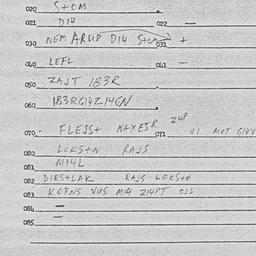 020 S+OM
021 D14 022 —
030 NEM ARUP D14 S+OM 031 +
040 LEFL 041 —
050 ZAJT 183R
060 183RG14Z14GN
070 FLESS+ NAYESR 2UP 071 V1 MOT G14V
080 LOKS+N RAJS
081 M14L
082 DIRS+LAK RAJS LOKS+N
083 KORNS VUS M14 214PT OJS
084 —
085 —